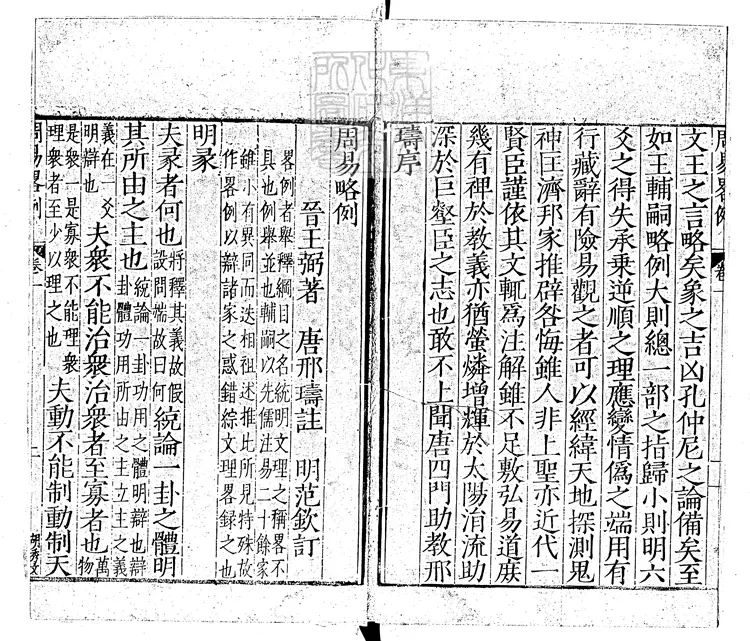 文王之言略矣象之吉凶孔仲尼之論備矣至
如王輔嗣略例大則總一部之指歸小則明六
爻之得失承乗逆順之理應變情僞之端用有
行藏辭有險易觀之者可以經緯天地探測鬼
神匡濟邦家推辟咎悔雖人非上聖亦近代一
賢臣謹依其文輒爲注解雖不足敷弘易道庶
幾有裨於教義亦猶螢燐增輝於太陽涓流助
深於巨壑臣之志也敢不上聞唐四門助教邢
璹序
周易畧例
卷一
周易略例
晉王弼著 唐邢璹註 明范欽訂
畧例者舉釋綱目之名統明文理之稱畧不
具也例舉並也輔嗣以先儒注易二十餘家
雖小有異同而迭相祖述推比所見特殊故
作畧例以辯諸家之惑錯綜文理畧録之也
明彖
夫彖者何也將釋其義故假
設問端故曰何統論一卦之體明
其所由之主也統論一卦功用之體明辯也辯
卦體功用所由之主立主之義
義在一爻
明辯也夫衆不能治衆治衆者至寡者也萬物
是衆一是寡衆不能理衆
理衆者至少以理之也夫動不能制動制天
周易畧例
卷一